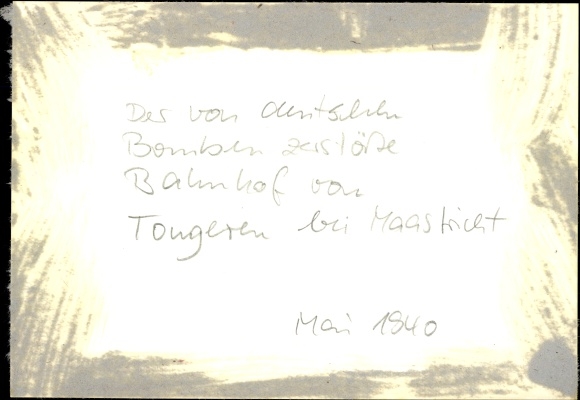 Der von deutschen
Bomben zerstörte
Bahnhof von
Tongeren bei Maastricht
Mai 1940